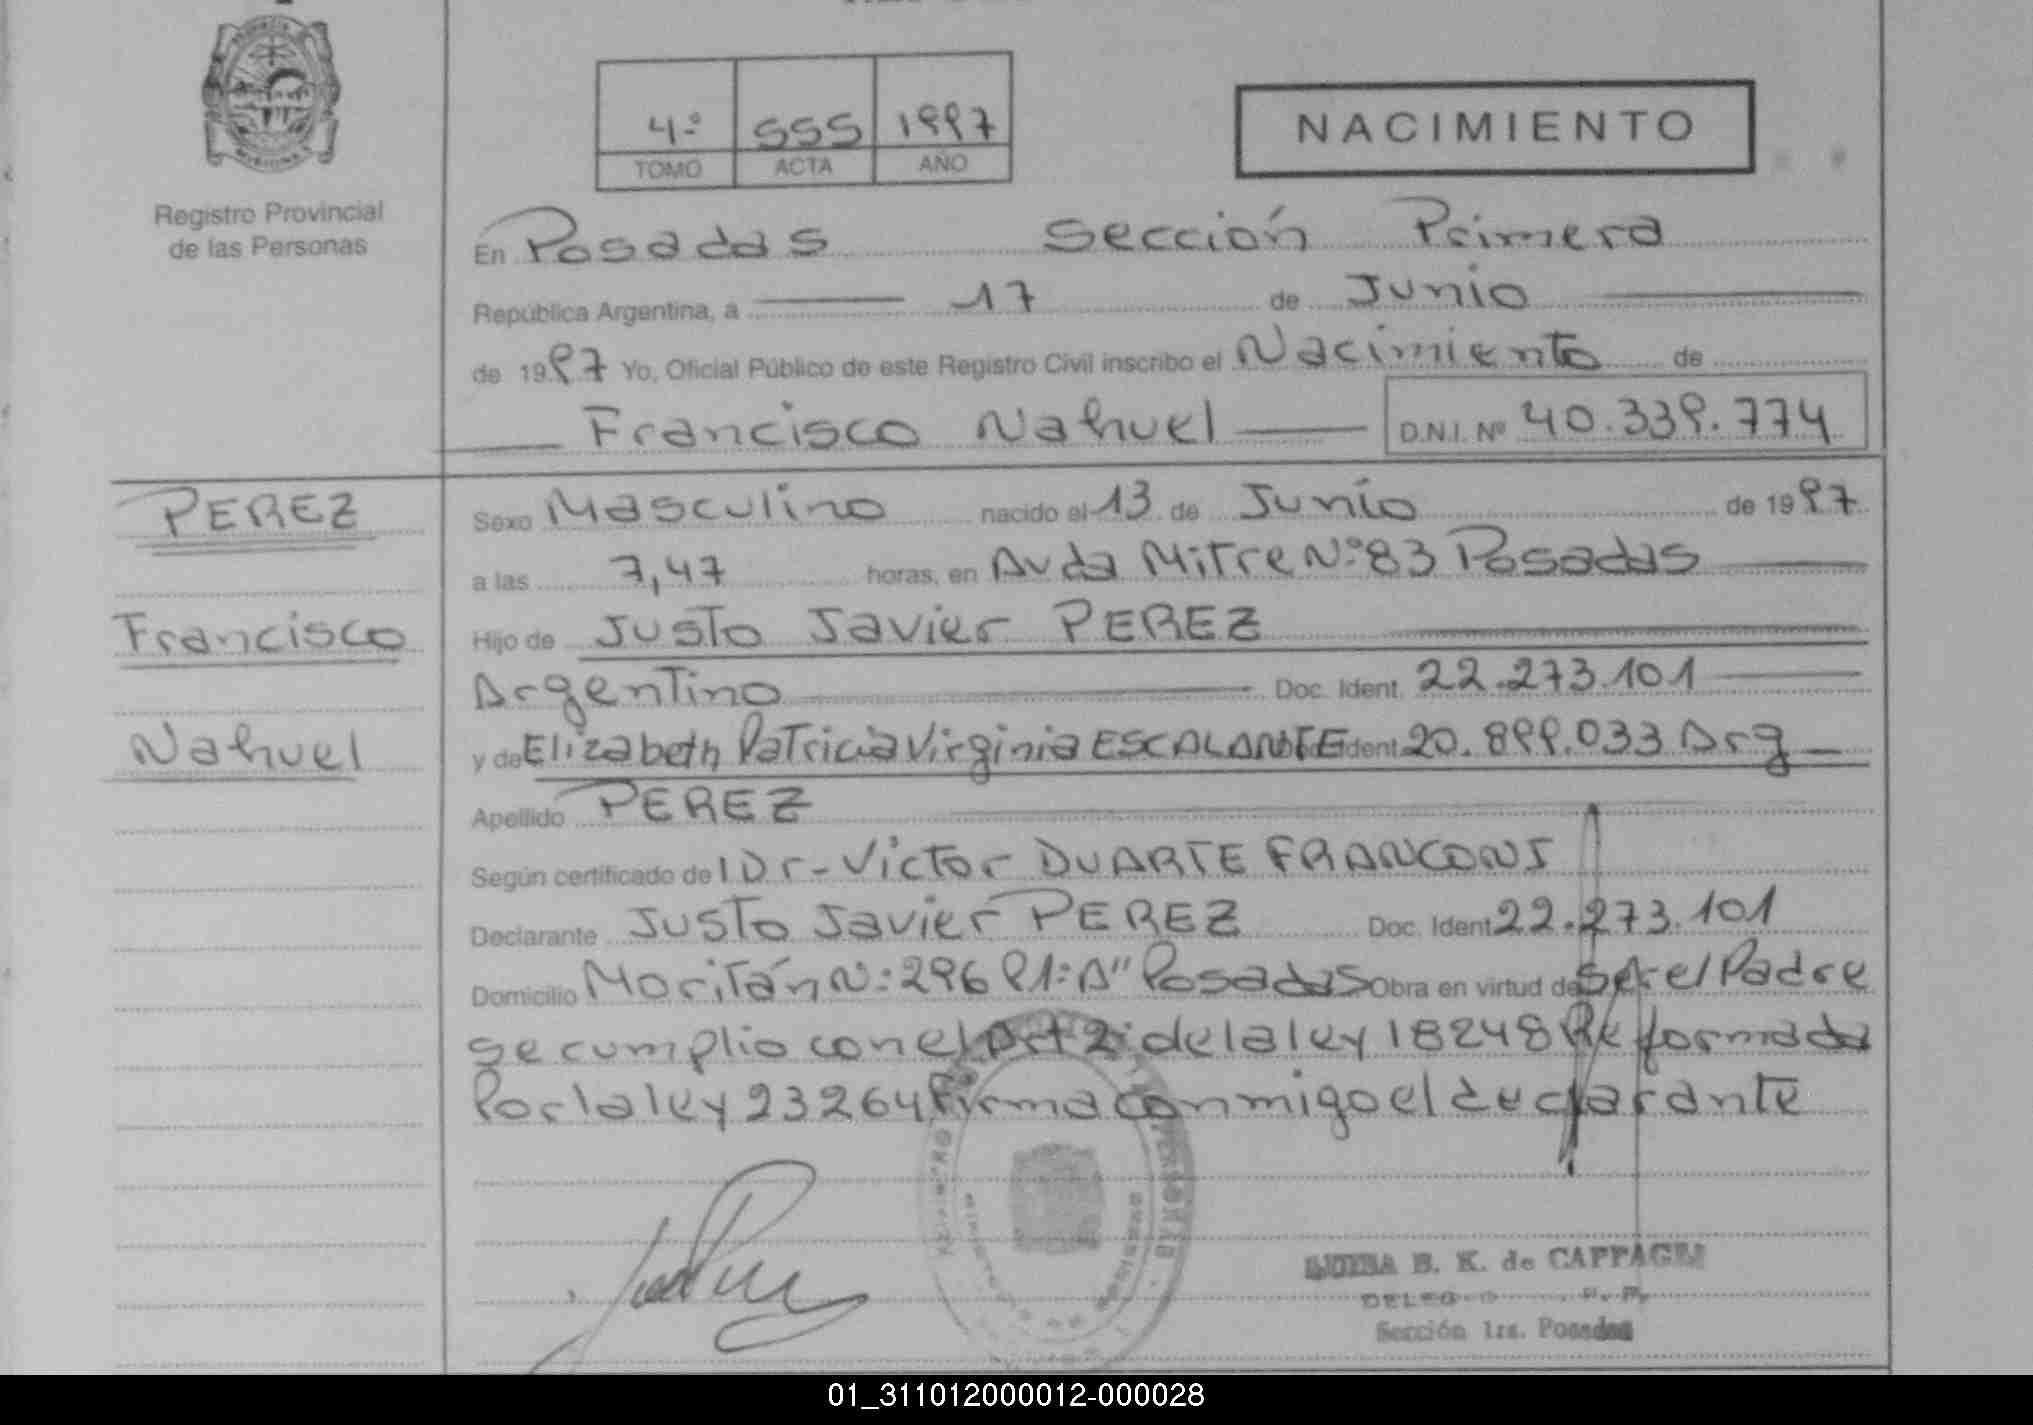 4º 555 1997
TOMO ACTA AÑO
NACIMIENTO
Registro Provincial
de las Personas
En Posadas Sección Primera
República Argentina, a 17 de Junio
de 1997 Yo, Oficial Público de este Registro Civil inscribo el Nacimiento de
Francisco Nahuel D.N.I. Nº 40.339.774
PEREZ
Francisco
Nahuel
Sexo Masculino nacido el 13 de Junio de 1997
a las 7,47 horas, en Avda Mitre Nº 83 Posadas
Hijo de Justo Javier PEREZ
Argentino Doc. Ident. 22.273.101
y de Elizabeth Patricia Virginia ESCALANTE Ident 20.899.033 Arg
Apellido PEREZ
Según certificado del Dr-Victor DUARTE
Declarante Justo Javier PEREZ Doc. Ident 22.273.101
Domicilio Moritán N: 296 P1: A" Posadas Obra en virtud de ser el Padre
se cumplio con el Art 2: de la ley 18248 Reformada
Por la ley 23264 Firma conmigo el declarante
B. K. de
Sección 1ra. Posadas
01_311012000012-000028